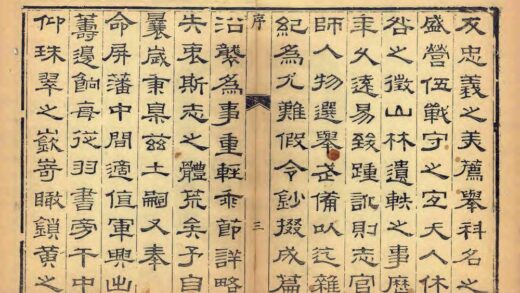 及忠義之美薦舉科名之
盛營伍戰守之宜天人休
咎之徵山林遺軼之事歷
年久遠易致踵訛則志官
師人物選舉武備以迄雜
紀為尤難假令鈔掇成篇
序 三
沿襲為事重輕乖節詳略
失衷斯志之體荒矣予自
曩歲秉臬茲土嗣又奉
命屏藩中間適值軍興出
籌邊餉每從羽書旁午中
仰珠翠之嶔嵜瞰鎖黃之